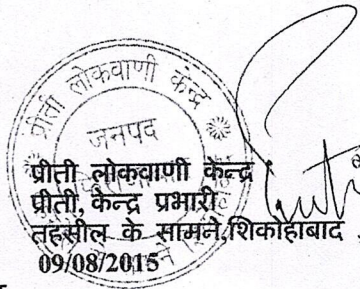 प्रीती लोकवाणी केन्द्र
जनपद
प्रीती लोकवाणी केन्द्र
प्रीती, केन्द्र प्रभारी
तहसील के सामने,शिकोहाबाद
09/08/2015